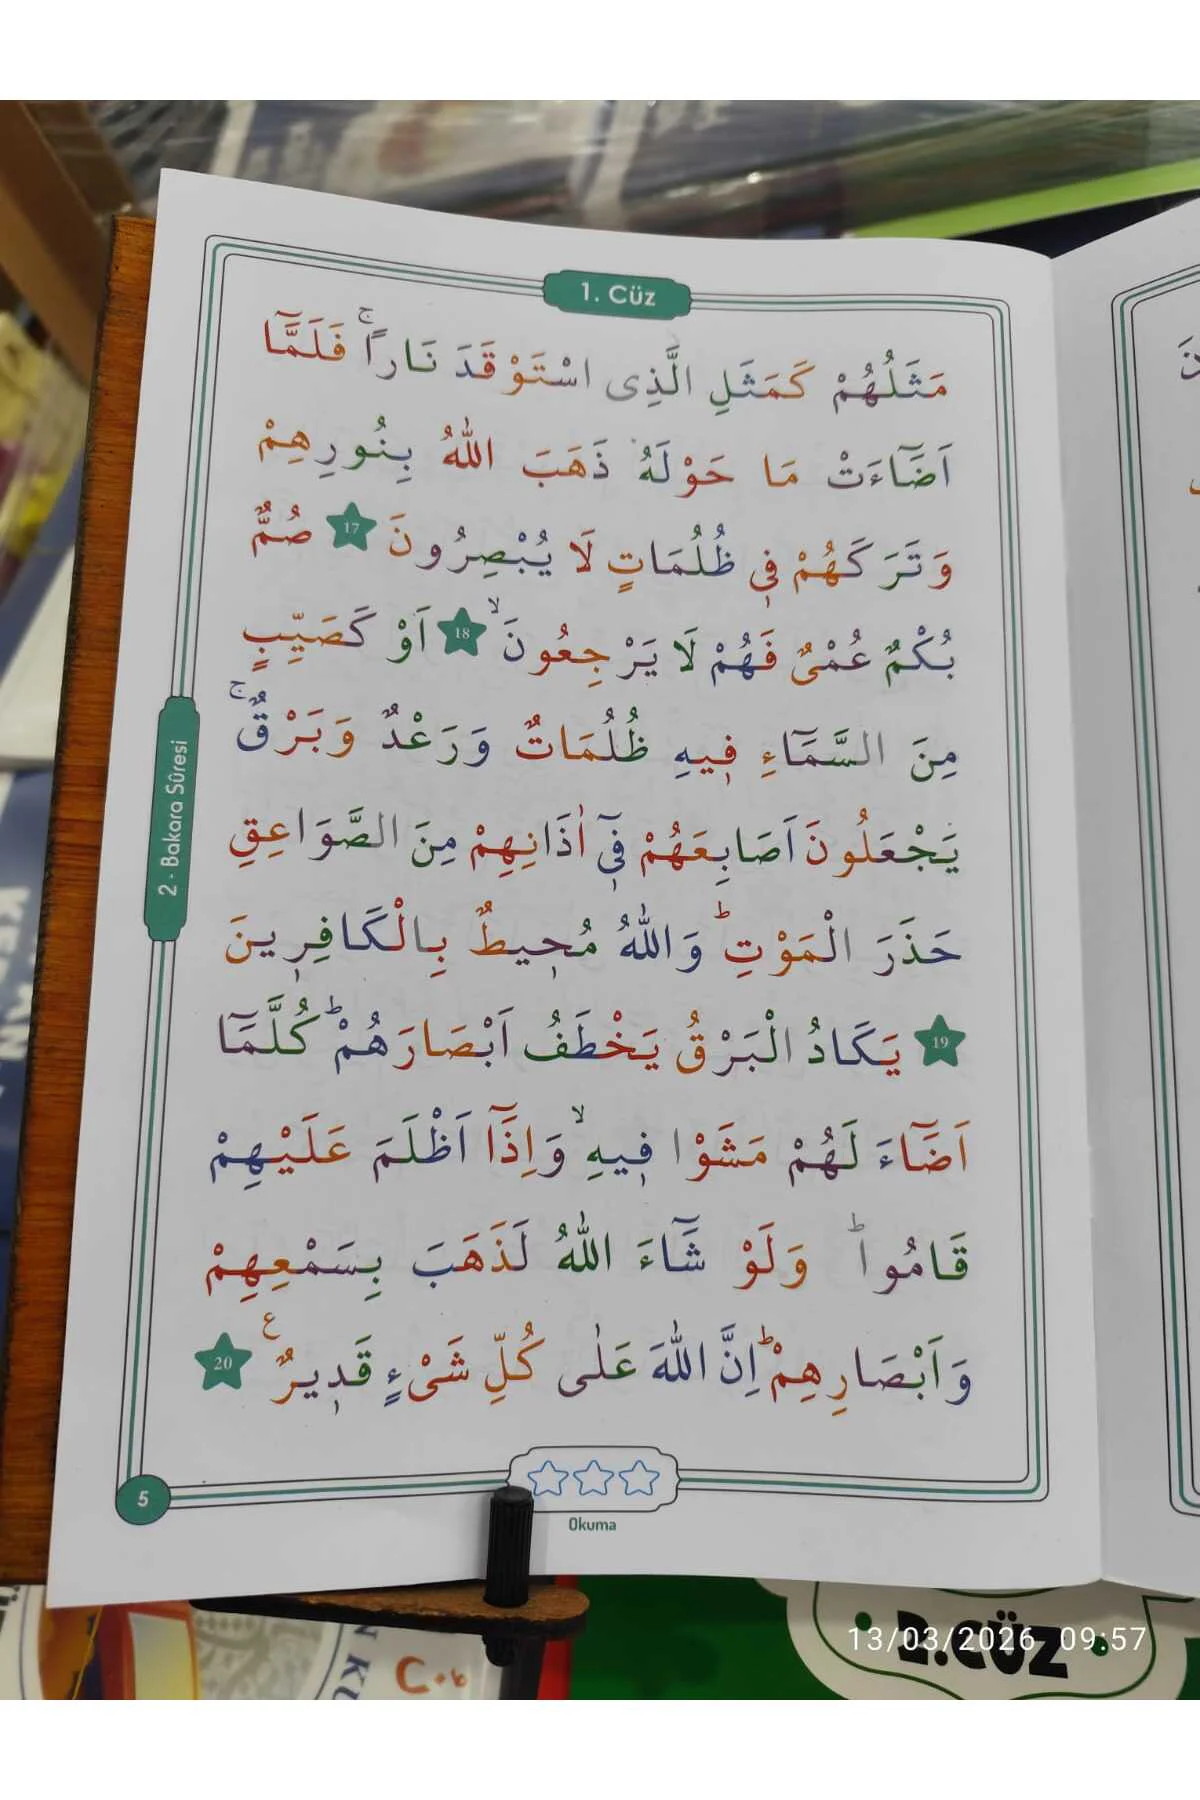 1. Cüz
مَثَلُهُمْ كَمَثَلِ الَّذِى اسْتَوْقَدَ نَارًاۚ فَلَمَّٓا
اَضَٓاءَتْ مَا حَوْلَهُ ذَهَبَ اللّٰهُ بِنُورِهِمْ
وَتَرَكَهُمْ فٖى ظُلُمَاتٍ لَا يُبْصِرُونَ 17 صُمٌّ
بُكْمٌ عُمْىٌ فَهُمْ لَا يَرْجِعُونَۙ 18 اَوْ كَصَيِّبٍ
مِنَ السَّمَٓاءِ فٖيهِ ظُلُمَاتٌ وَرَعْدٌ وَبَرْقٌۚ
يَجْعَلُونَ اَصَابِعَهُمْ فٖٓى اٰذَانِهِمْ مِنَ الصَّوَاعِقِ
حَذَرَ الْمَوْتِؕ وَاللّٰهُ مُحٖيطٌ بِالْكَافِرٖينَ
19 يَكَادُ الْبَرْقُ يَخْطَفُ اَبْصَارَهُمْؕ كُلَّمَٓا
اَضَٓاءَ لَهُمْ مَشَوْا فٖيهِۙ وَاِذَٓا اَظْلَمَ عَلَيْهِمْ
قَامُواؕ وَلَوْ شَٓاءَ اللّٰهُ لَذَهَبَ بِسَمْعِهِمْ
وَاَبْصَارِهِمْؕ اِنَّ اللّٰهَ عَلٰى كُلِّ شَىْءٍ قَدٖيرٌ ع 20
2 - Bakara Sûresi
5
Okuma
2.CÜZ
13/03/2026 09:57